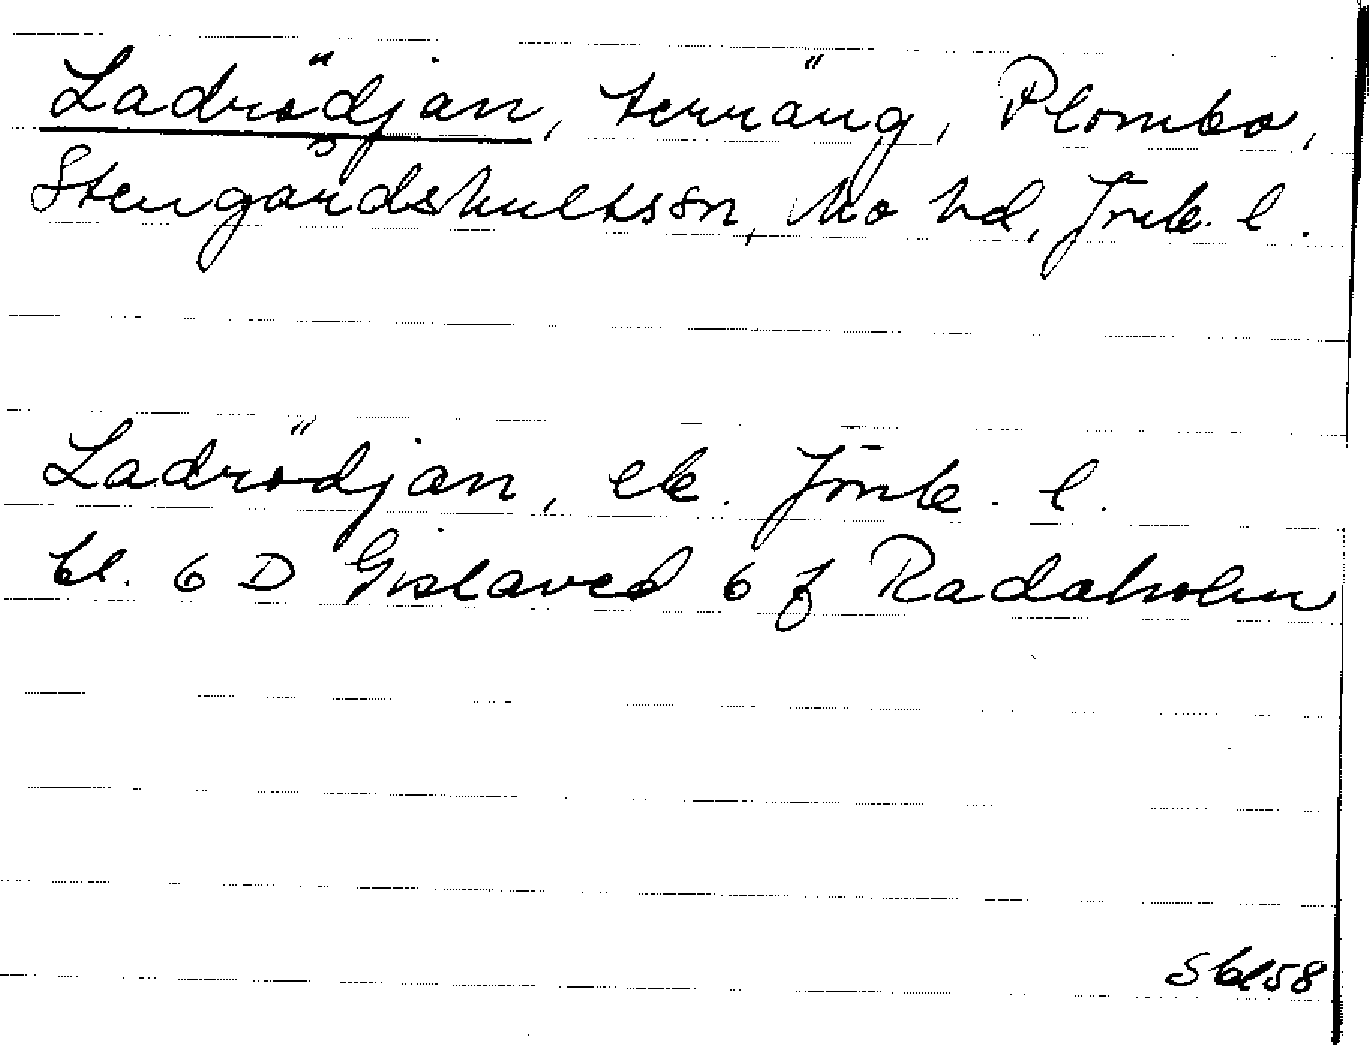 Ladrödjan, terräng, Plombo,
Stengårdshultssn, Mo hd, Jönk. l.
Ladrödjan, ek. Jönk. l.
bl. 6 D Gislaved 6 f Radaholm
Sbl58